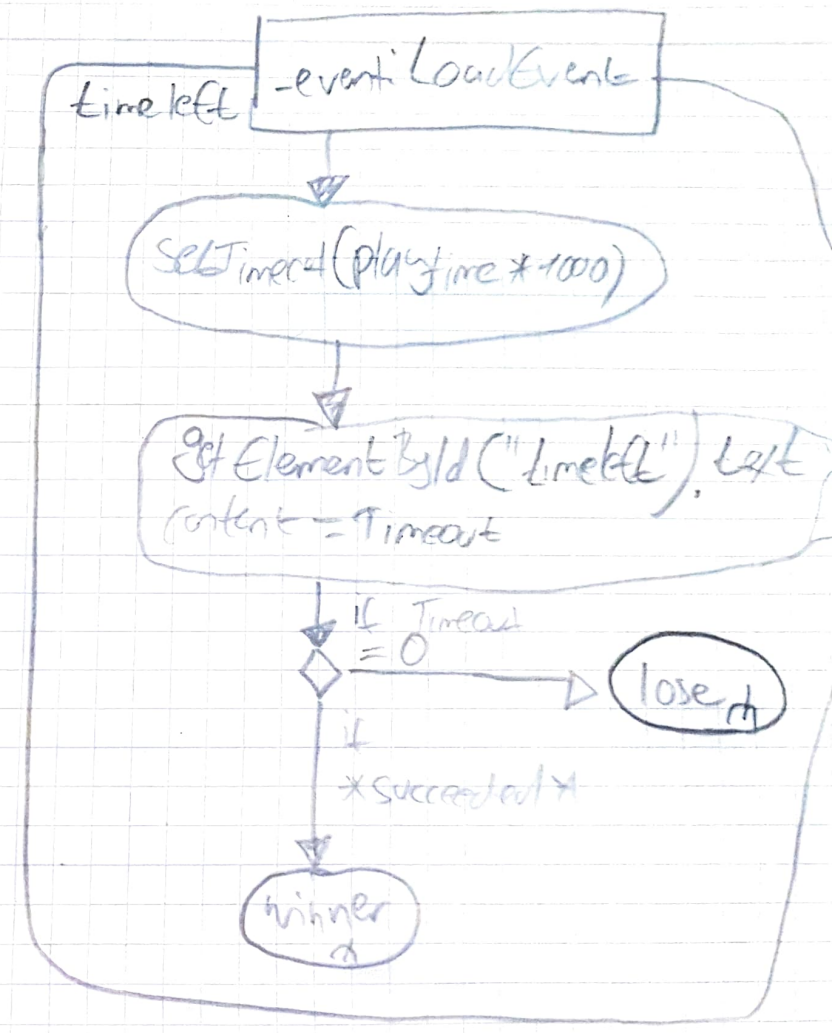 _event: LoadEvent
timeleft
setTimeout(playtime * 1000)
getElementById("timeleft").text
content = Timeout
if Timeout
= 0
lose
if
*succeeded*
winner